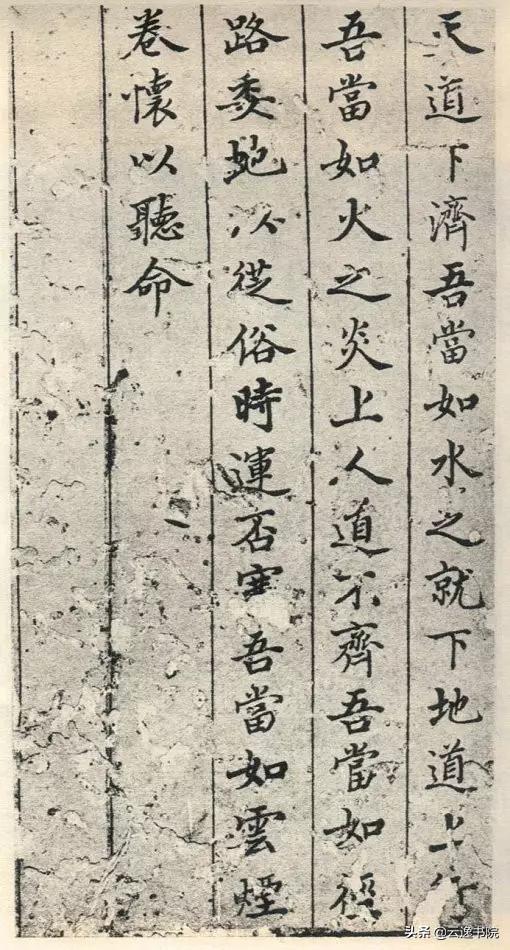 天道下濟吾當如水之就下地道上行
吾當如火之炎上人道不齊吾當如徑
路委虵以從俗時運否塞吾當如雲煙
卷懷以聽命
头条 @云逸书院